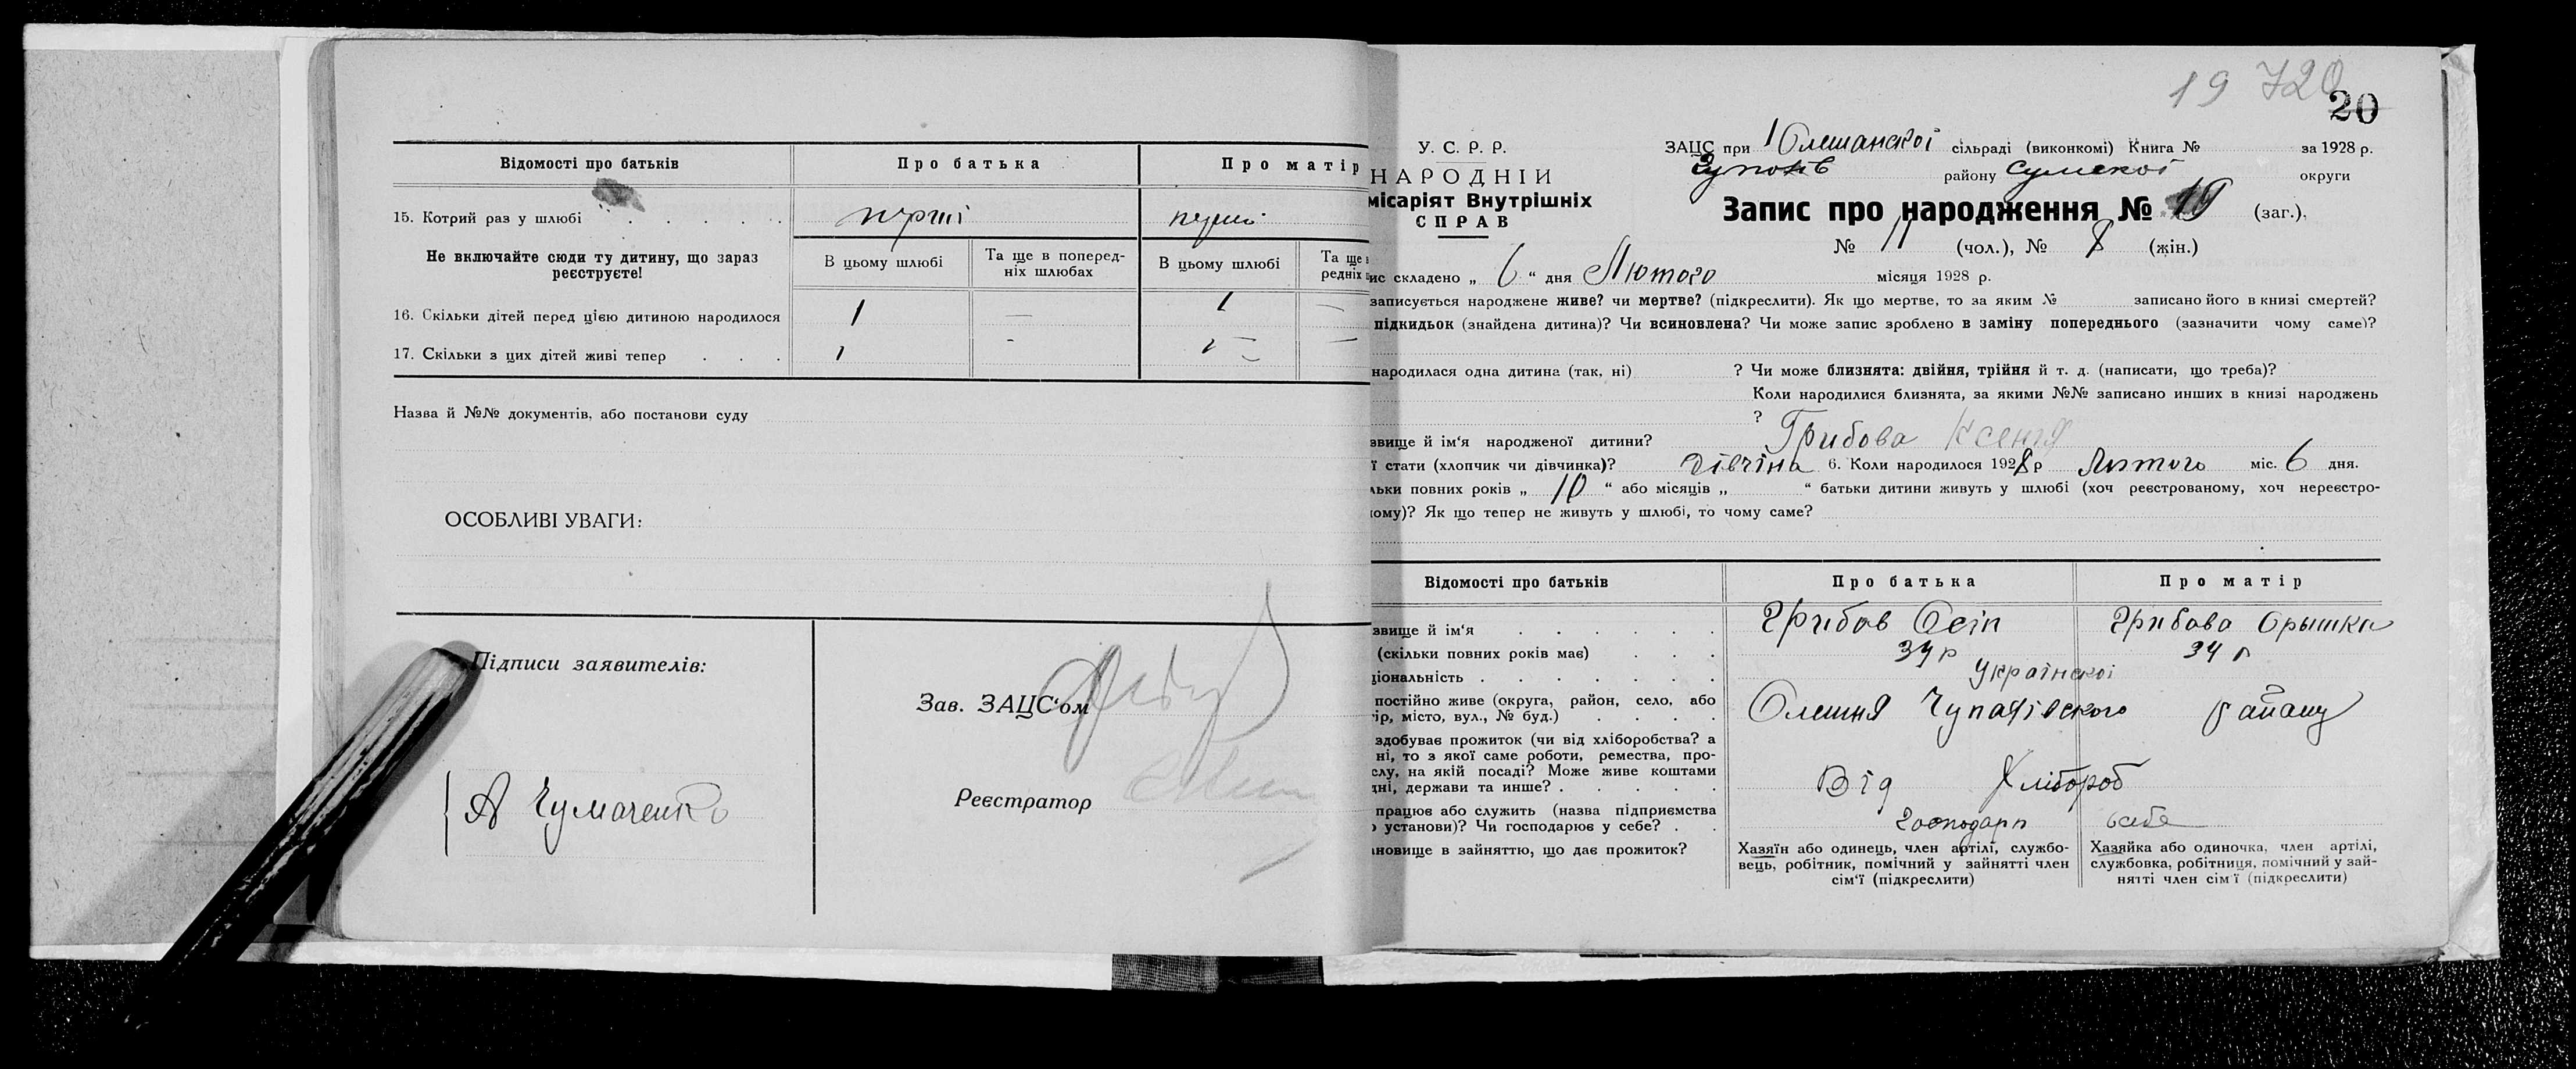 Відомості про батьків
Про батька
Про матір
15. Котрий раз у шлюбі
перші
перші
Не включайте сюди ту дитину, що зараз
реєструєте!
В цьому шлюбі
Та ще в поперед-
ніх шлюбах
В цьому шлюбі
Та ще в
редніх
16. Скільки дітей перед цією дитиною народилося
1
—
1
—
17. Скільки з цих дітей живі тепер
1
-
1
—
Назва й №№ документів, або постанови суду
ОСОБЛИВІ УВАГИ:
Підписи заявителів:
А Чумаченко
Зав. ЗАЦС'ом
Реєстратор
19 720
20
У. С. Р. Р.
НАРОДНІЙ
місаріят Внутрішніх
СПРАВ
ЗАЦС при Олешанскої сільраді (виконкомі) Книга № за 1928 р.
району Сумскої округи
Запис про народження № 19 (заг.),
№ 11 (чол.), № 8 (жін.)
ис складено „ 6 “ дня Лютого місяця 1928 р.
записується народжене живе? чи мертве? (підкреслити). Як що мертве, то за яким № записано його в книзі смертей?
підкидьок (знайдена дитина)? Чи всиновлена? Чи може запис зроблено в заміну попереднього (зазначити чому саме)?
народилася одна дитина (так, ні) ? Чи може близнята: двійня, трійня й т. д. (написати, що треба)?
Коли народилися близнята, за якими №№ записано инших в книзі народжень
?
звище й ім'я народженої дитини? Грибова Ксенія
ї стати (хлопчик чи дівчинка)? дівчіна 6. Коли народилося 1928 р Лютого міс. 6 дня.
льки повних років „ 10 “ або місяців „ “ батьки дитини живуть у шлюбі (хоч реєстрованому, хоч нереєстро-
ому)? Як що тепер не живуть у шлюбі, то чому саме?
Відомості про батьків
Про батька
Про матір
звище й ім'я
Грибов Осіп
Грибова Орышка
(скільки повних років має)
34 р
34 р
ціональність
Українскої
постійно живе (округа, район, село, або
ір, місто, вул., № буд.)
Олешня Чупахівского району
здобуває прожиток (чи від хліборобства? а
ні, то з якої саме роботи, ремества, про-
слу, на якій посаді? Може живе коштами
дні, держави та инше?
Від Хлібороб
працює або служить (назва підприємства
о установи)? Чи господарює у себе?
господарп всебе
ановище в зайняттю, що дає прожиток?
Хазяїн або одинець, член артілі, службо-
вець, робітник, помічний у зайнятті член
сім'ї (підкреслити)
Хазяйка або одиночка, член артілі,
службовка, робітниця, помічний у зай-
нятті член сім'ї (підкреслити)